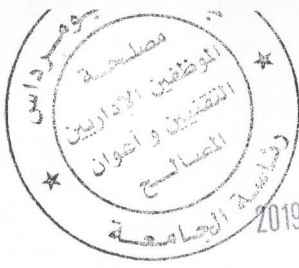 بومرداس
مصلحة
الموظفين الإداريين
التقنيين و أعوان
المصالح
رئاسة الجامعة
2019